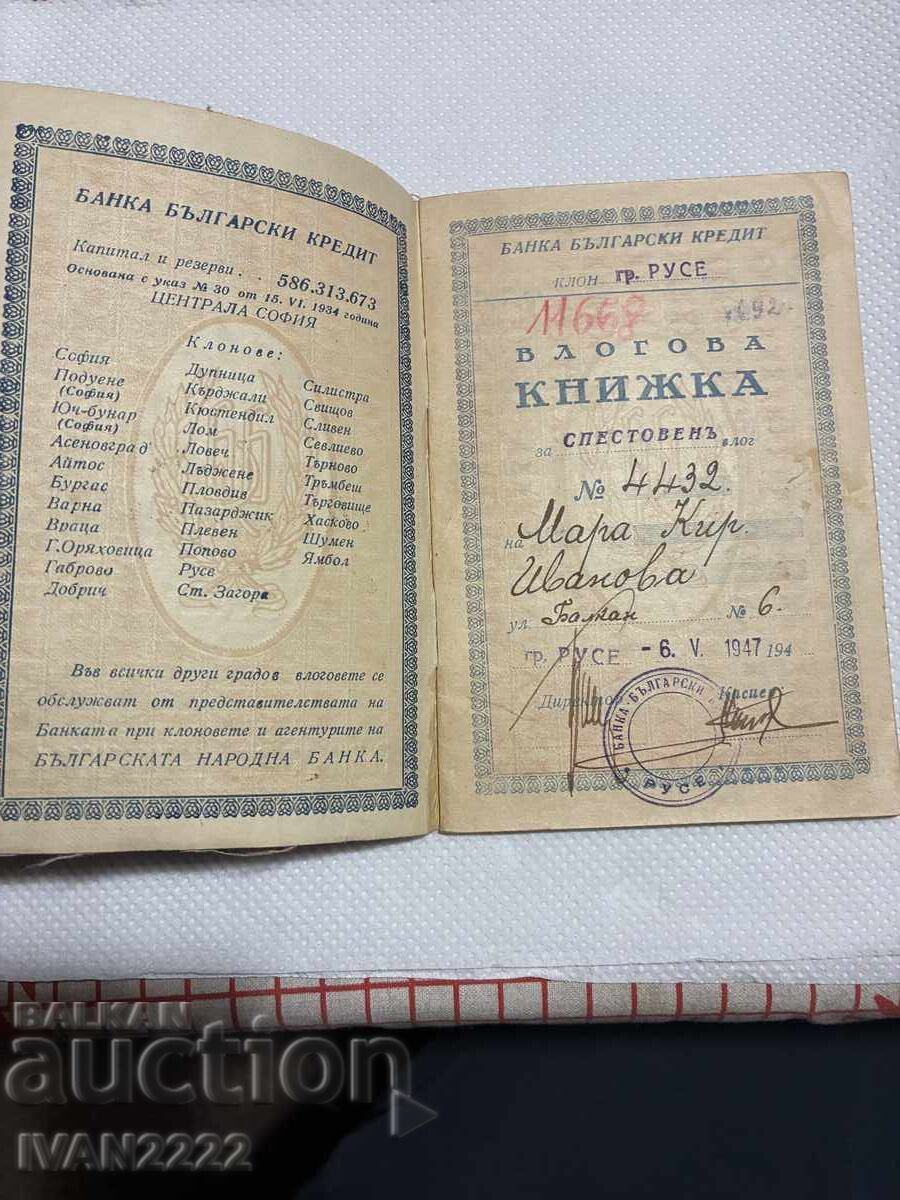 БАНКА БЪЛГАРСКИ КРЕДИТ
Капитал и резерви . . 586.313.673
Основана с указ № 30 от 15. VI. 1934 година
ЦЕНТРАЛА СОФИЯ
Клонове:
София
Подуене
(София)
Юч-бунар
(София)
Асеновград
Айтос
Бургас
Варна
Враца
Г. Оряховица
Габрово
Добрич
Дупница
Кърджали
Кюстендил
Лом
Ловеч
Лъджене
Пловдив
Пазарджик
Плевен
Попово
Русе
Ст. Загора
Силистра
Свищов
Сливен
Севлиево
Търново
Тръмбеш
Търговище
Хасково
Шумен
Ямбол
Във всички други градов влоговете се
обслужват от представителствата на
Банката при клоновете и агентурите на
БЪЛГАРСКАТА НАРОДНА БАНКА.
БАНКА БЪЛГАРСКИ КРЕДИТ
КЛОН гр. РУСЕ
11668
ВЛОГОВА
КНИЖКА
за СПЕСТОВЕНЪ влог
№ 4432.
на Мара Кир.
Иванова
ул. Балкан № 6.
гр. РУСЕ - 6. V. 1947 194
Директор Касиер
БАНКА БЪЛГАРСКИ
РУСЕ
BALKAN
auction
IVAN2222